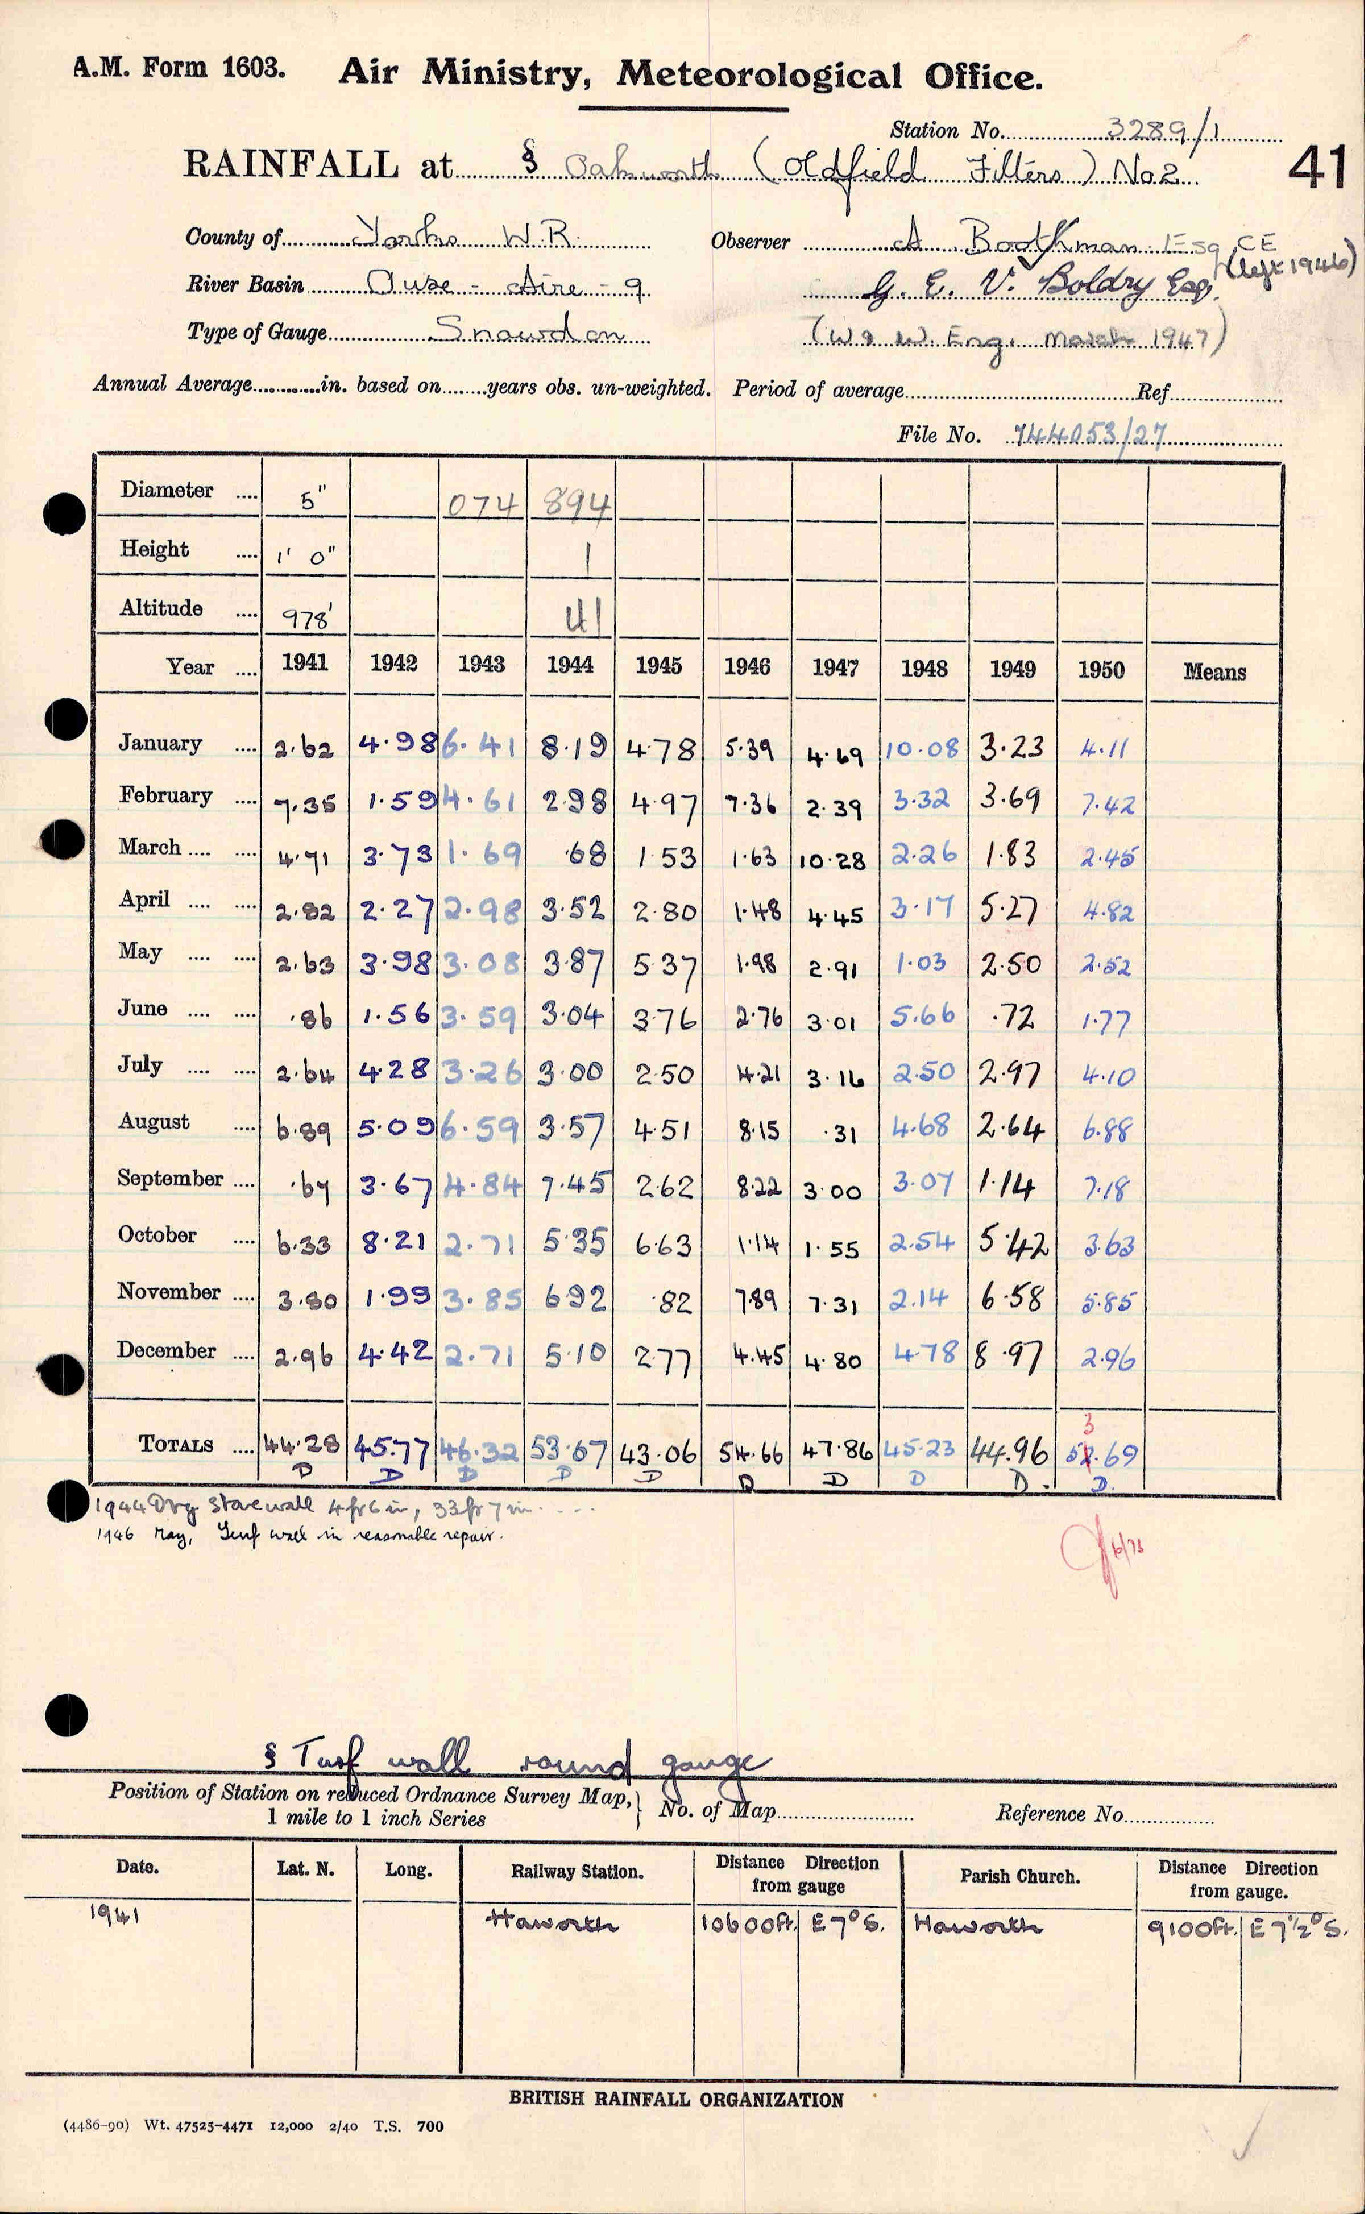 A.M. Form 1603. Air Ministry, Meteorological Office.
Station No. 3289/1
RAINFALL at § Oakworth (Oldfield Filters) No 2
41
County of Yorks W.R. Observer A Boothman Esq CE
(left 1946)
River Basin Ouse - Aire - 9 G. E. V. Boldry Esq.
Type of Gauge Snowdon (W & W. Eng. March 1947)
Annual Average in. based on years obs. un-weighted. Period of average Ref
File No. 744053/27
Diameter 5" 074 894
Height 1' 0" 1
Altitude 978' 41
Year 1941 1942 1943 1944 1945 1946 1947 1948 1949 1950 Means
January 2.62 4.98 6.41 8.19 4.78 5.39 4.69 10.08 3.23 4.11
February 7.35 1.59 4.61 2.98 4.97 7.36 2.39 3.32 3.69 7.42
March 4.71 3.73 1.69 .68 1.53 1.63 10.28 2.26 1.83 2.45
April 2.82 2.27 2.98 3.52 2.80 1.48 4.45 3.17 5.27 4.82
May 2.63 3.98 3.08 3.87 5.37 1.98 2.91 1.03 2.50 2.52
June .86 1.56 3.59 3.04 3.76 2.76 3.01 5.66 .72 1.77
July 2.64 4.28 3.26 3.00 2.50 4.21 3.16 2.50 2.97 4.10
August 6.89 5.09 6.59 3.57 4.51 8.15 .31 4.68 2.64 6.88
September .67 3.67 4.84 7.45 2.62 8.22 3.00 3.07 1.14 7.18
October 6.33 8.21 2.71 5.35 6.63 1.14 1.55 2.54 5.42 3.63
November 3.80 1.99 3.85 6.92 .82 7.89 7.31 2.14 6.58 5.85
December 2.96 4.42 2.71 5.10 2.77 4.45 4.80 4.78 8.97 2.96
3
TOTALS 44.28 45.77 46.32 53.67 43.06 54.66 47.86 45.23 44.96 52.69
D D D D D D D D D. D.
1944 Dry stone wall 4ft 6in, 33ft 7in
1946 May, Turf wall in reasonable repair.
6/73
§ Turf wall round gauge
Position of Station on reduced Ordnance Survey Map, 1 mile to 1 inch Series } No. of Map Reference No.
Date. Lat. N. Long. Railway Station. Distance Direction from gauge Parish Church. Distance Direction from gauge.
1941 Haworth 10600ft. E 7° S. Haworth 9100ft. E 7½° S.
BRITISH RAINFALL ORGANIZATION
(4486-90) Wt. 47525-4471 12,000 2/40 T.S. 700